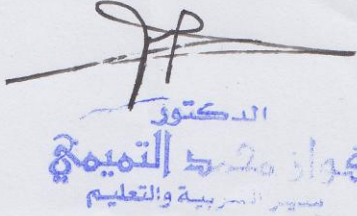 الدكتور
فواز محمد التميمي
مدير التربية والتعليم